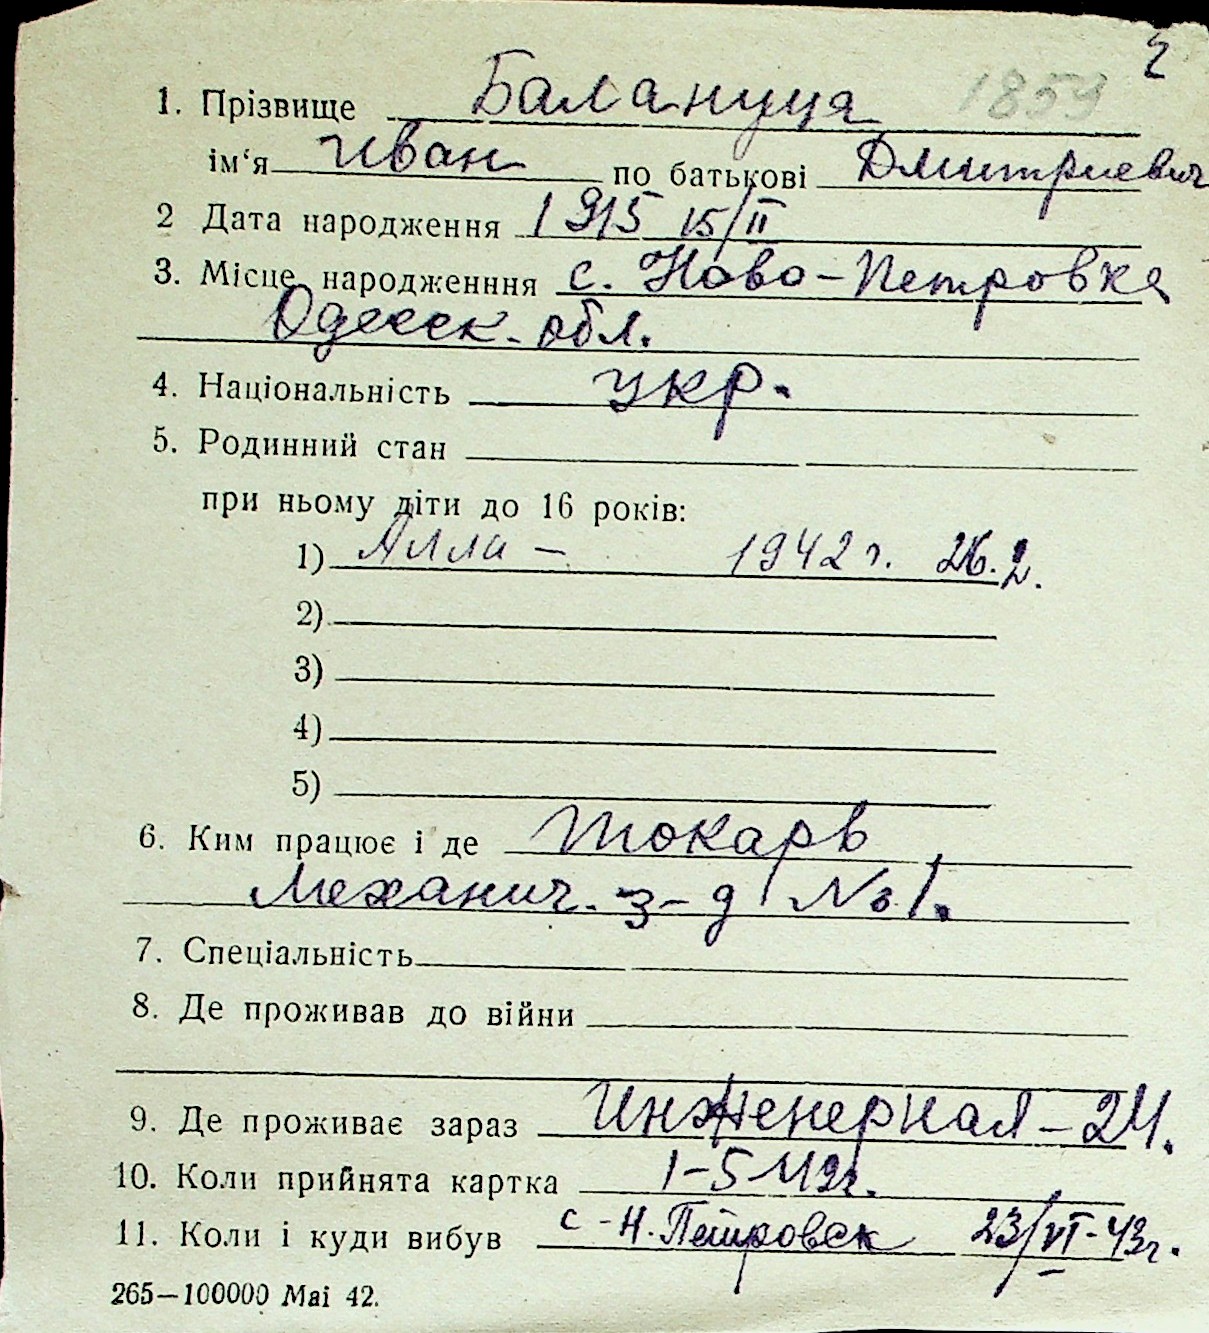 2
1. Прізвище Балануца 1859
ім‘я Иван по батькові Дмитриевич
2 Дата народження 1915 15/II
3. Місце народженння с. Ново-Петровка
Одесск. обл.
4. Національність укр.
5. Родинний стан
при ньому діти до 16 років:
1) Алла - 1942 г. 26.2.
2)
3)
4)
5)
6. Ким працює і де токарь
механич. з-д №1.
7. Спеціальність
8. Де проживав до війни
9. Де проживає зараз Инженерная-24.
10. Коли прийнята картка 1-5 42г.
11. Коли і куди вибув с-Н.Петровск 23/VI-43г.
265—100000 Mai 42.